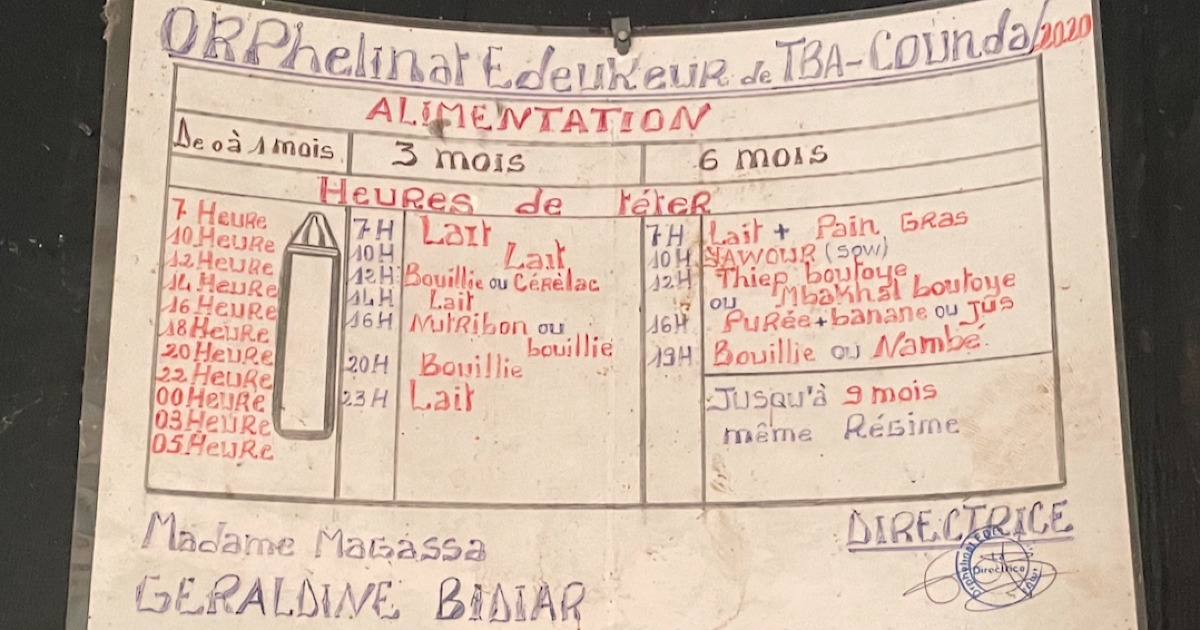 ORPhelinat Edeukeur de TBA-COUNDA/2020
ALIMENTATION
De 0 à 1 mois
3 mois
6 mois
HEURES de téter
7 Heure
10 Heure
12 Heure
14 Heure
16 Heure
18 Heure
20 Heure
22 Heure
00 Heure
03 Heure
05 Heure
7H Lait
10H Lait
12H Bouillie ou Cérèlac
14H Lait
16H Nutribon ou
bouillie
20H Bouillie
23H Lait
7H Lait + Pain GRAS
10H YAWOUR (sow)
12H Thiep boutoye
ou Mbakhal boutoye
16H Purée + banane ou Jûs
19H Bouillie ou Nambé.
Jusqu'à 9 mois
même Régime
Madame Magassa
GERALDINE BIDIAR
DIRECTRICE
Directrice